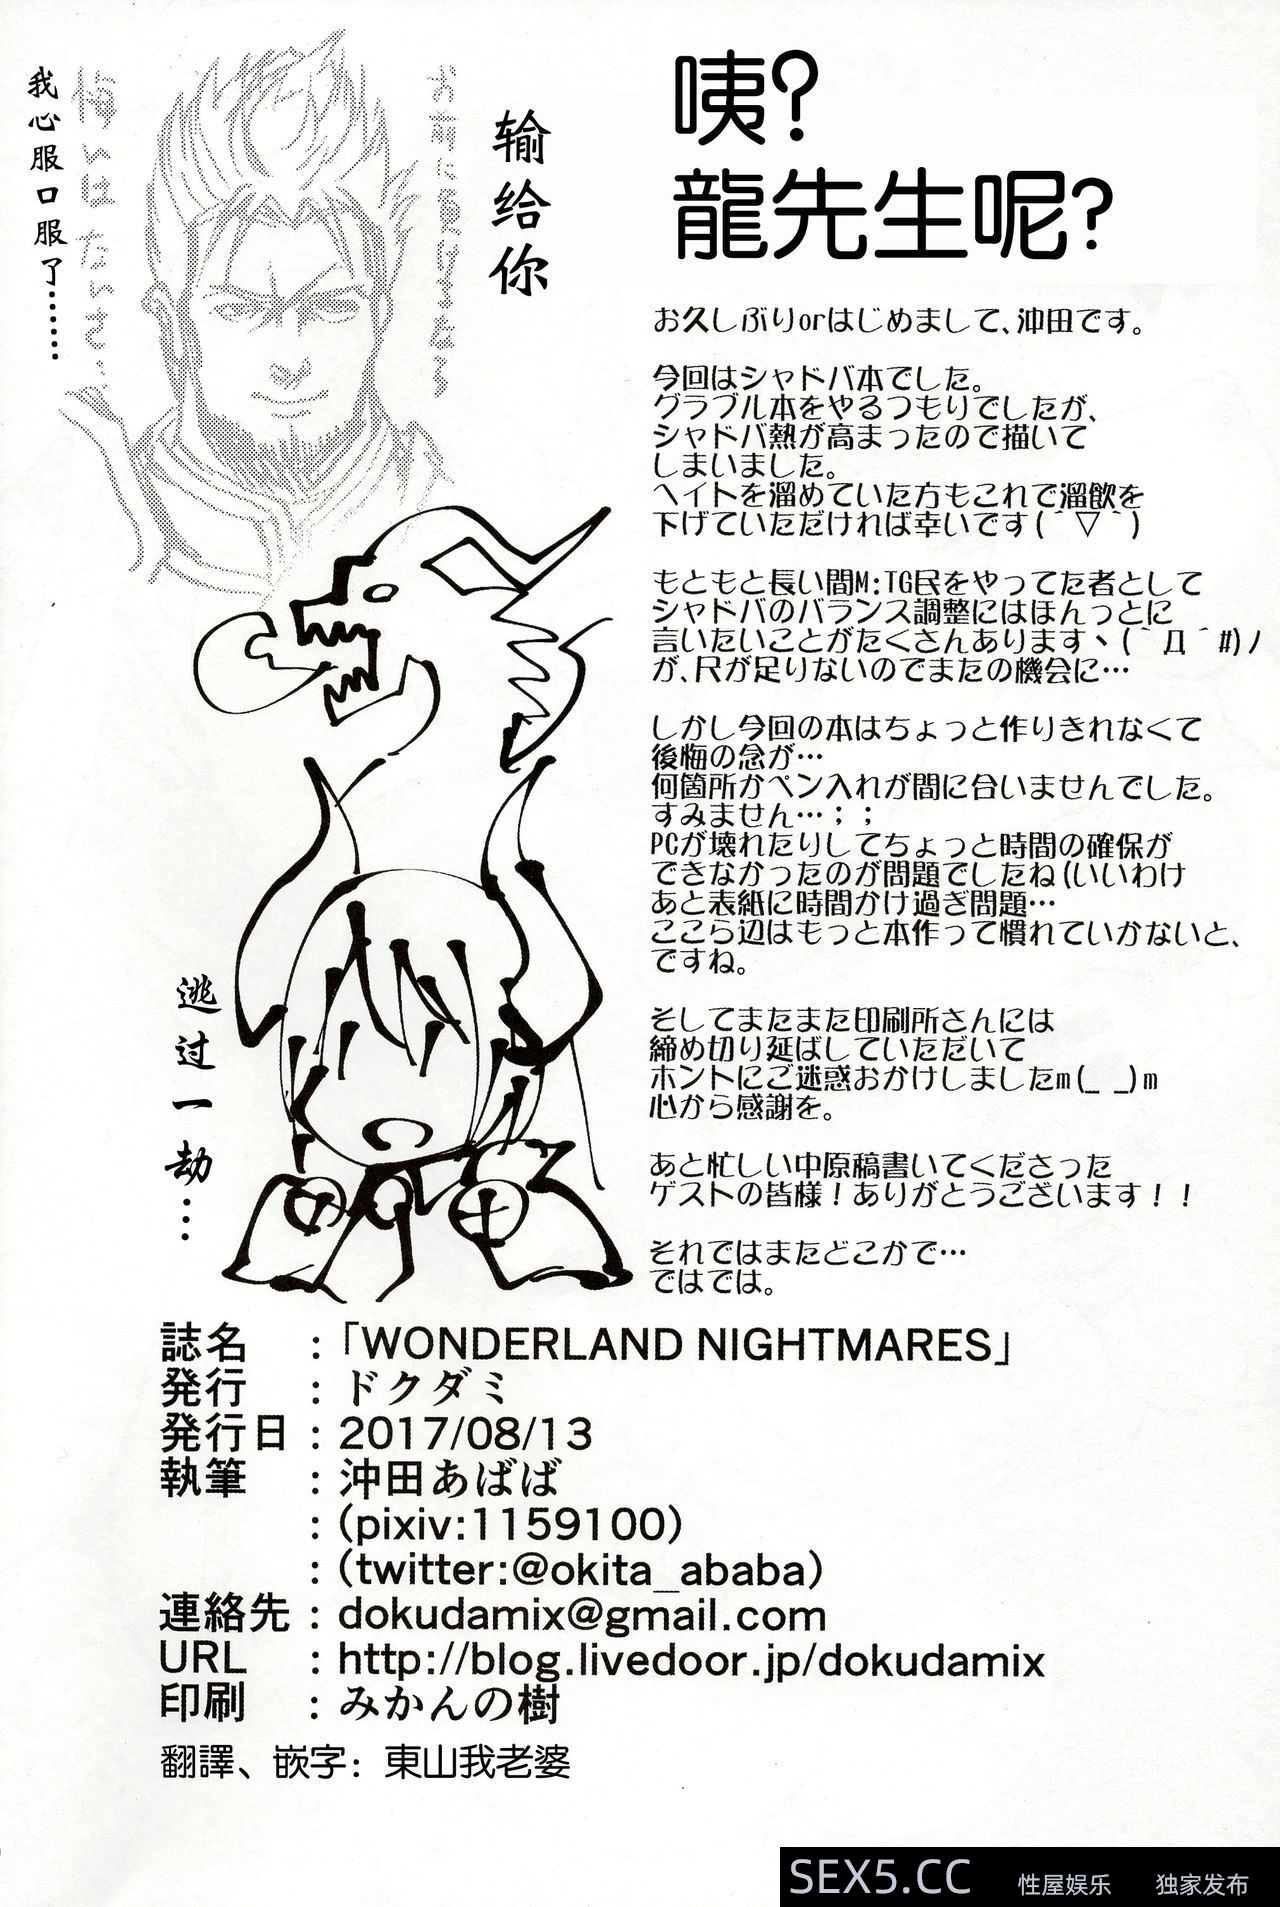 咦?
龍先生呢?
输给你
我心服口服了……
お前に負けるなら
悔いはないさ…
お久しぶりorはじめまして、沖田です。
今回はシャドバ本でした。
グラブル本をやるつもりでしたが、
シャドバ熱が高まったので描いて
しまいました。
ヘイトを溜めていた方もこれで溜飲を
下げていただければ幸いです(´▽`)
もともと長い間M:TG民をやってた者として
シャドバのバランス調整にはほんっとに
言いたいことがたくさんありますヽ(`Д´#)ノ
が、尺が足りないのでまたの機会に…
しかし今回の本はちょっと作りきれなくて
後悔の念が…
何箇所かペン入れが間に合いませんでした。
すみません…；；
PCが壊れたりしてちょっと時間の確保が
できなかったのが問題でしたね(いいわけ
あと表紙に時間かけ過ぎ問題…
ここら辺はもっと本作って慣れていかないと、
ですね。
そしてまたまた印刷所さんには
締め切り延ばしていただいて
ホントにご迷惑おかけしましたm(_ _)m
心から感謝を。
あと忙しい中原稿書いてくださった
ゲストの皆様！ありがとうございます！！
それではまたどこかで…
ではでは。
逃过一劫…
誌名 :「WONDERLAND NIGHTMARES」
発行 : ドクダミ
発行日 : 2017/08/13
執筆 : 沖田あばば
: (pixiv:1159100)
: (twitter:@okita_ababa)
連絡先 : dokudamix@gmail.com
URL : http://blog.livedoor.jp/dokudamix
印刷 : みかんの樹
翻譯、嵌字: 東山我老婆
SEX5.CC 性屋娱乐 独家发布